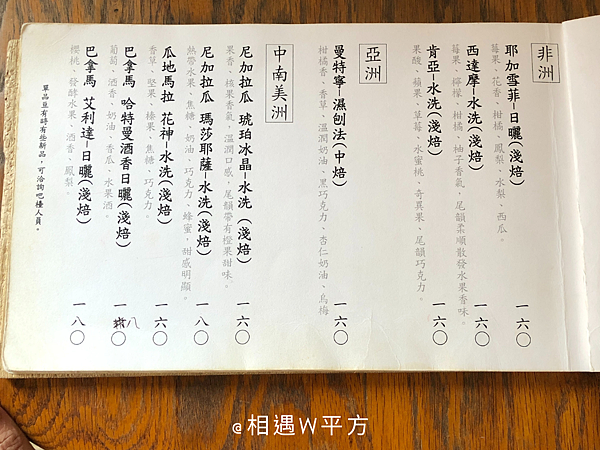 非洲
耶加雪菲-日曬(淺焙)
莓果、花香、柑橘、鳳梨、水梨、西瓜。
一六〇
西達摩-水洗(淺焙)
莓果、檸檬、柑橘、柚子香氣，尾韻柔順散發水果香味。
一六〇
肯亞-水洗(淺焙)
果酸、蘋果、草莓、水蜜桃、奇異果、尾韻巧克力。
一六〇
亞洲
曼特寧-濕刨法(中焙)
柑橘香、香草、溫潤奶油、黑巧克力、杏仁奶油、烏梅
一六〇
中南美洲
尼加拉瓜 琥珀冰晶-水洗(淺焙)
果香、核果香氣，溫潤口感，尾韻帶有橙果甜味。
一六〇
尼加拉瓜 瑪莎耶薩-水洗(淺焙)
熱帶水果、焦糖、奶油、巧克力、蜂蜜，甜感明顯。
一八〇
瓜地馬拉 花神-水洗(淺焙)
香草、堅果、榛果、焦糖、巧克力
一六〇
巴拿馬 哈特曼酒香日曬(淺焙)
葡萄、酒香、奶油、香瓜、水果酒。
一八〇
巴拿馬 艾利達-日曬(淺焙)
櫻桃、發酵水果、酒香、鳳梨。
一八〇
單品豆有時有些新品，可洽詢吧檯人員。
@相遇W平方